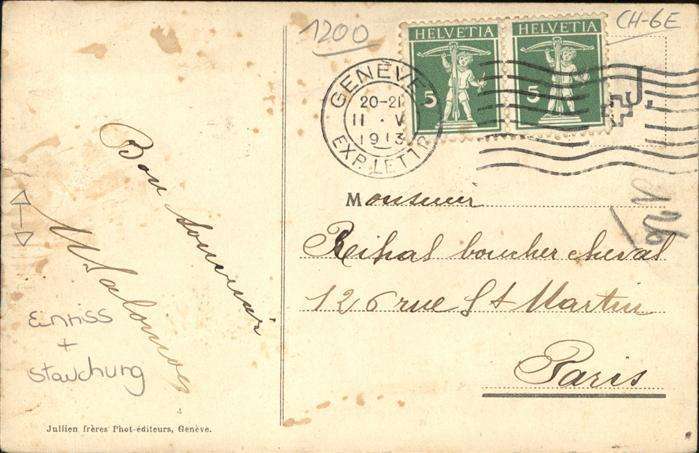 1200
CH-6E
HELVETIA
5
HELVETIA
5
GENÈVE
20-21
11 · V
1913
EXP. LETTR.
Bon souvenir
Einriss
+
Stauchung
Monsieur
boucher cheval
126 rue St Martin
Paris
Jullien frères Phot-éditeurs, Genève.